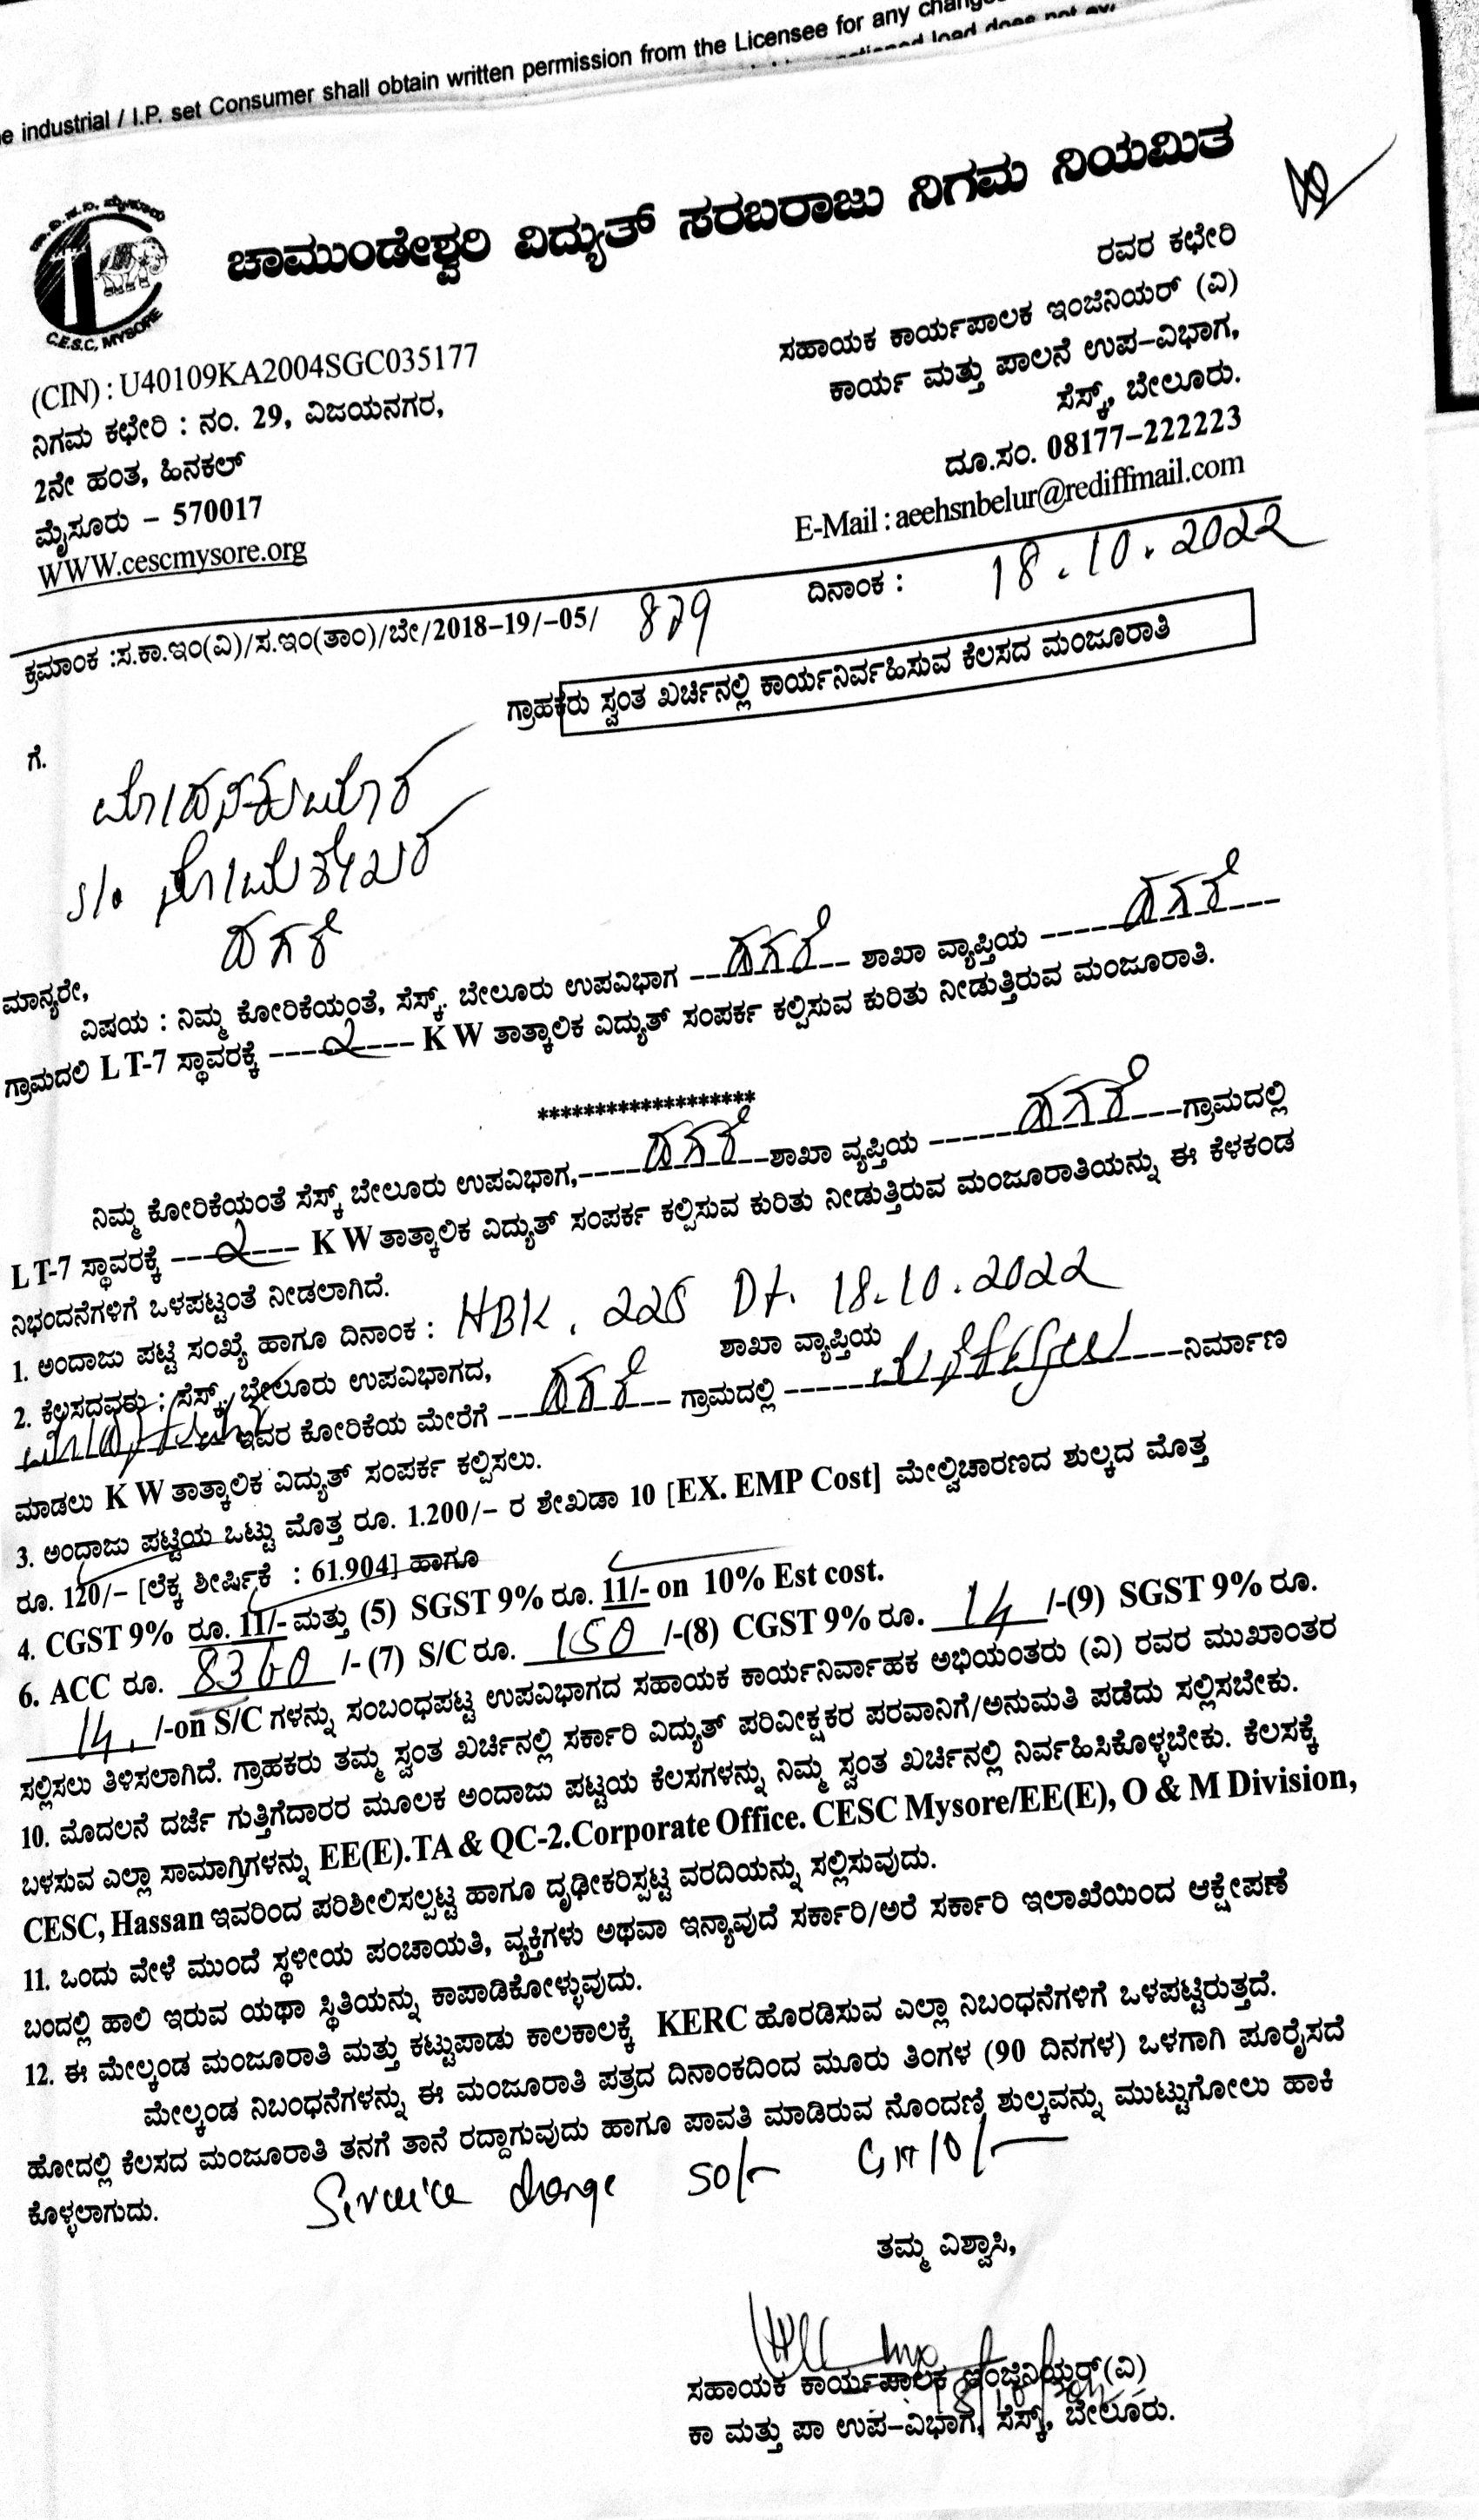 e industrial / I.P. set Consumer shall obtain written permission from the Licensee for any
load does not
ಚಾಮುಂಡೇಶ್ವರಿ ವಿದ್ಯುತ್ ಸರಬರಾಜು ನಿಗಮ ನಿಯಮಿತ
C.E.S.C, MYSORE
(CIN) : U40109KA2004SGC035177
ನಿಗಮ ಕಛೇರಿ : ನಂ. 29, ವಿಜಯನಗರ,
2ನೇ ಹಂತ, ಹಿನಕಲ್
ಮೈಸೂರು – 570017
WWW.cescmysore.org
ರವರ ಕಛೇರಿ
ಸಹಾಯಕ ಕಾರ್ಯಪಾಲಕ ಇಂಜಿನಿಯರ್ (ವಿ)
ಕಾರ್ಯ ಮತ್ತು ಪಾಲನೆ ಉಪ–ವಿಭಾಗ,
ಸೆಸ್ಕ್, ಬೇಲೂರು.
ದೂ.ಸಂ. 08177–222223
E-Mail : aeehsnbelur@rediffmail.com
ಕ್ರಮಾಂಕ :ಸ.ಕಾ.ಇಂ(ವಿ)/ಸ.ಇಂ(ತಾಂ)/ಬೇ/2018–19/–05/ 879 ದಿನಾಂಕ : 18.10.2022
ಗ್ರಾಹಕರು ಸ್ವಂತ ಖರ್ಚಿನಲ್ಲಿ ಕಾರ್ಯನಿರ್ವಹಿಸುವ ಕೆಲಸದ ಮಂಜೂರಾತಿ
ಗೆ.
ಮೋಹನಕುಮಾರ
s/o ಸೋಮಶೇಖರ
ಹಗರೆ
ಮಾನ್ಯರೇ,
ವಿಷಯ : ನಿಮ್ಮ ಕೋರಿಕೆಯಂತೆ, ಸೆಸ್ಕ್. ಬೇಲೂರು ಉಪವಿಭಾಗ --ಹಗರೆ-- ಶಾಖಾ ವ್ಯಾಪ್ತಿಯ -----ಹಗರೆ---
ಗ್ರಾಮದಲಿ L T-7 ಸ್ಥಾವರಕ್ಕೆ ----2---- K W ತಾತ್ಕಾಲಿಕ ವಿದ್ಯುತ್ ಸಂಪರ್ಕ ಕಲ್ಪಿಸುವ ಕುರಿತು ನೀಡುತ್ತಿರುವ ಮಂಜೂರಾತಿ.
*******************
ನಿಮ್ಮ ಕೋರಿಕೆಯಂತೆ ಸೆಸ್ಕ್ ಬೇಲೂರು ಉಪವಿಭಾಗ,----ಹಗರೆ--ಶಾಖಾ ವ್ಯಪ್ತಿಯ -----ಹಗರೆ---ಗ್ರಾಮದಲ್ಲಿ
L T-7 ಸ್ಥಾವರಕ್ಕೆ ---2---- K W ತಾತ್ಕಾಲಿಕ ವಿದ್ಯುತ್ ಸಂಪರ್ಕ ಕಲ್ಪಿಸುವ ಕುರಿತು ನೀಡುತ್ತಿರುವ ಮಂಜೂರಾತಿಯನ್ನು ಈ ಕೆಳಕಂಡ
ನಿಭಂದನೆಗಳಿಗೆ ಒಳಪಟ್ಟಂತೆ ನೀಡಲಾಗಿದೆ.
1. ಅಂದಾಜು ಪಟ್ಟಿ ಸಂಖ್ಯೆ ಹಾಗೂ ದಿನಾಂಕ : HBK. 225 Dt. 18.10.2022
2. ಕೆಲಸದವರು : ಸೆಸ್ಕ್, ಬೇಲೂರು ಉಪವಿಭಾಗದ, ಶಾಖಾ ವ್ಯಾಪ್ತಿಯ
ಇವರ ಕೋರಿಕೆಯ ಮೇರೆಗೆ --ಹಗರೆ-- ಗ್ರಾಮದಲ್ಲಿ ---ನಿರ್ಮಾಣ
ಮಾಡಲು K W ತಾತ್ಕಾಲಿಕ ವಿದ್ಯುತ್ ಸಂಪರ್ಕ ಕಲ್ಪಿಸಲು.
3. ಅಂದಾಜು ಪಟ್ಟಿಯ ಒಟ್ಟು ಮೊತ್ತ ರೂ. 1.200/– ರ ಶೇಖಡಾ 10 [EX. EMP Cost] ಮೇಲ್ವಿಚಾರಣದ ಶುಲ್ಕದ ಮೊತ್ತ
ರೂ. 120/– [ಲೆಕ್ಕ ಶೀರ್ಷಿಕೆ : 61.904] ಹಾಗೂ
4. CGST 9% ರೂ. 11/- ಮತ್ತು (5) SGST 9% ರೂ. 11/- on 10% Est cost.
6. ACC ರೂ. 8360 /- (7) S/C ರೂ. 150 /-(8) CGST 9% ರೂ. 14 /-(9) SGST 9% ರೂ.
14. /-on S/C ಗಳನ್ನು ಸಂಬಂಧಪಟ್ಟ ಉಪವಿಭಾಗದ ಸಹಾಯಕ ಕಾರ್ಯನಿರ್ವಾಹಕ ಅಭಿಯಂತರು (ವಿ) ರವರ ಮುಖಾಂತರ
ಸಲ್ಲಿಸಲು ತಿಳಿಸಲಾಗಿದೆ. ಗ್ರಾಹಕರು ತಮ್ಮ ಸ್ವಂತ ಖರ್ಚಿನಲ್ಲಿ ಸರ್ಕಾರಿ ವಿದ್ಯುತ್ ಪರಿವೀಕ್ಷಕರ ಪರವಾನಿಗೆ/ಅನುಮತಿ ಪಡೆದು ಸಲ್ಲಿಸಬೇಕು.
10. ಮೊದಲನೆ ದರ್ಜೆ ಗುತ್ತಿಗೆದಾರರ ಮೂಲಕ ಅಂದಾಜು ಪಟ್ಟಯ ಕೆಲಸಗಳನ್ನು ನಿಮ್ಮ ಸ್ವಂತ ಖರ್ಚಿನಲ್ಲಿ ನಿರ್ವಹಿಸಿಕೊಳ್ಳಬೇಕು. ಕೆಲಸಕ್ಕೆ
ಬಳಸುವ ಎಲ್ಲಾ ಸಾಮಾಗ್ರಿಗಳನ್ನು EE(E).TA & QC-2.Corporate Office. CESC Mysore/EE(E), O & M Division,
CESC, Hassan ಇವರಿಂದ ಪರಿಶೀಲಿಸಲ್ಪಟ್ಟ ಹಾಗೂ ದೃಢೀಕರಿಸ್ಪಟ್ಟ ವರದಿಯನ್ನು ಸಲ್ಲಿಸುವುದು.
11. ಒಂದು ವೇಳೆ ಮುಂದೆ ಸ್ಥಳೀಯ ಪಂಚಾಯತಿ, ವ್ಯಕ್ತಿಗಳು ಅಥವಾ ಇನ್ಯಾವುದೆ ಸರ್ಕಾರಿ/ಅರೆ ಸರ್ಕಾರಿ ಇಲಾಖೆಯಿಂದ ಆಕ್ಷೇಪಣೆ
ಬಂದಲ್ಲಿ ಹಾಲಿ ಇರುವ ಯಥಾ ಸ್ಥಿತಿಯನ್ನು ಕಾಪಾಡಿಕೋಳ್ಳುವುದು.
12. ಈ ಮೇಲ್ಕಂಡ ಮಂಜೂರಾತಿ ಮತ್ತು ಕಟ್ಟುಪಾಡು ಕಾಲಕಾಲಕ್ಕೆ KERC ಹೊರಡಿಸುವ ಎಲ್ಲಾ ನಿಬಂಧನೆಗಳಿಗೆ ಒಳಪಟ್ಟಿರುತ್ತದೆ.
ಮೇಲ್ಕಂಡ ನಿಬಂಧನೆಗಳನ್ನು ಈ ಮಂಜೂರಾತಿ ಪತ್ರದ ದಿನಾಂಕದಿಂದ ಮೂರು ತಿಂಗಳ (90 ದಿನಗಳ) ಒಳಗಾಗಿ ಪೂರೈಸದೆ
ಹೋದಲ್ಲಿ ಕೆಲಸದ ಮಂಜೂರಾತಿ ತನಗೆ ತಾನೆ ರದ್ದಾಗುವುದು ಹಾಗೂ ಪಾವತಿ ಮಾಡಿರುವ ನೊಂದಣಿ ಶುಲ್ಕವನ್ನು ಮುಟ್ಟುಗೋಲು ಹಾಕಿ
ಕೊಳ್ಳಲಾಗುದು.
Service charge 50/-
ತಮ್ಮ ವಿಶ್ವಾಸಿ,
ಸಹಾಯಕ ಕಾರ್ಯಪಾಲಕ ಇಂಜಿನಿಯರ್(ವಿ)
ಕಾ ಮತ್ತು ಪಾ ಉಪ–ವಿಭಾಗ, ಸೆಸ್ಕ್, ಬೇಲೂರು.